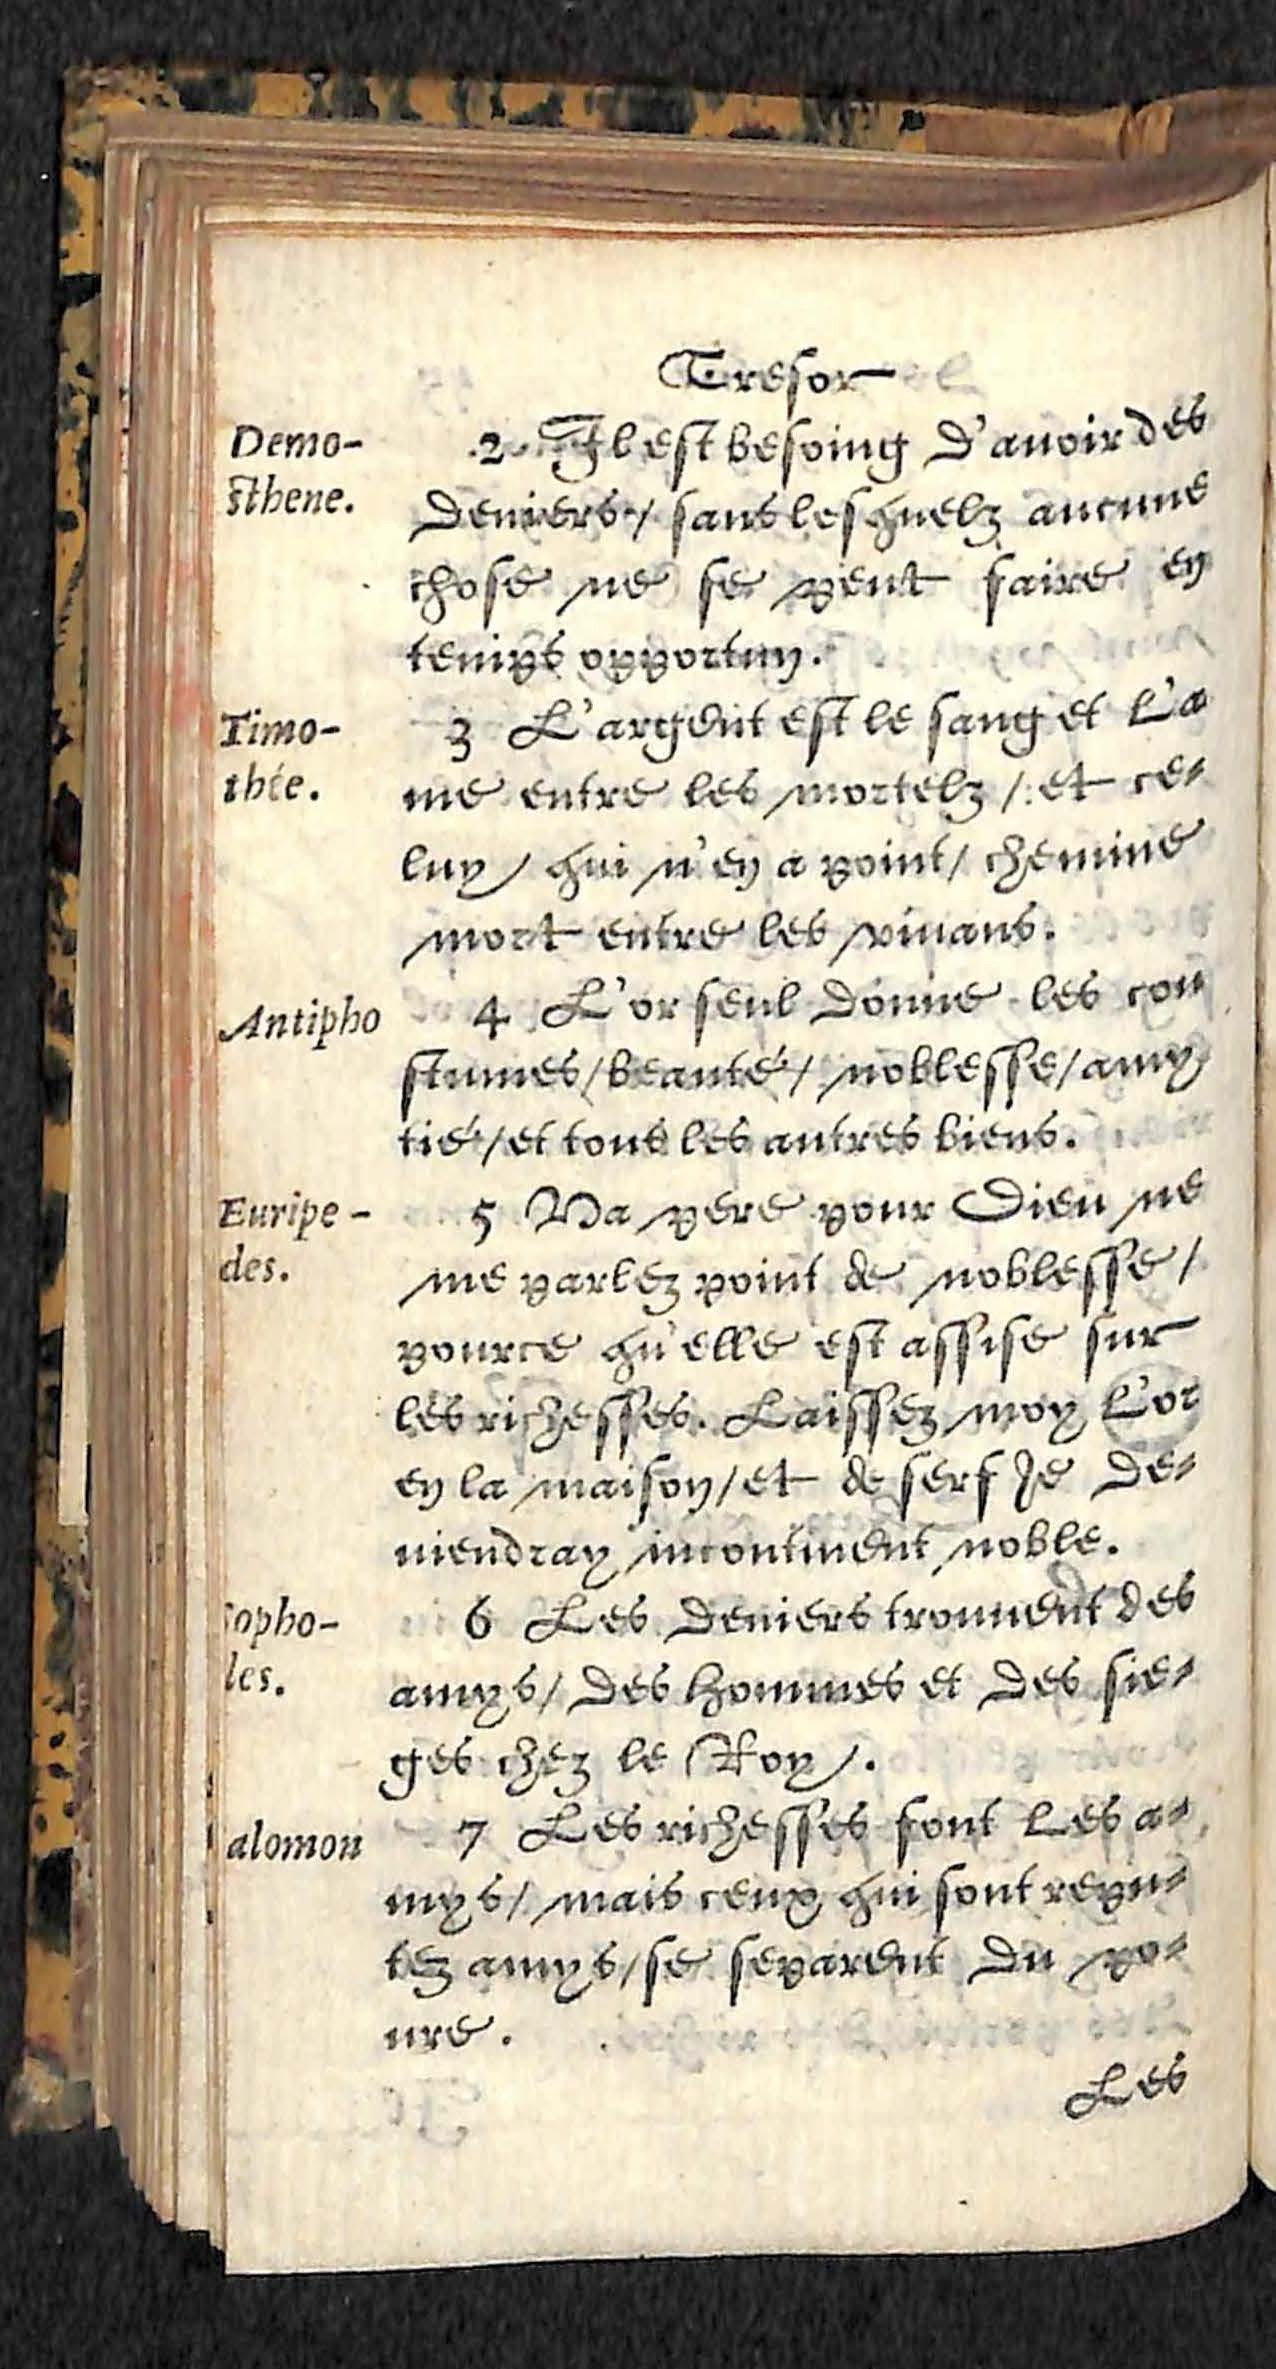 Tresor
Demo-
sthene.
2 Il est besoing d'auoir des
deniers/ sans lesquelz aucune
chose ne se peut faire en
temps opportun.
Timo-
thée.
3 L'argent est le sang et l'a
me entre les mortelz/ et ce-
luy/ qui n'en a point/ chemine
mort entre les viuans.
Antipho
4 L'or seul donne les cou
stumes/ beauté/ noblesse/ amy
tié/ et tous les autres biens.
Euripe-
des.
5 Ma pere pour Dieu ne
me parlez point de noblesse/
pource qu'elle est assise sur
les richesses. Laissez moy l'or
en la maison/ et de serf je de-
uiendray incontinent noble.
sopho-
les.
6 Les deniers trouuent des
amys/ des hommes et des sie-
ges chez le Roy.
alomon
7 Les richesses font les a-
mys/ mais ceux qui sont repu-
tez amys/ se separent du po-
ure.
Les